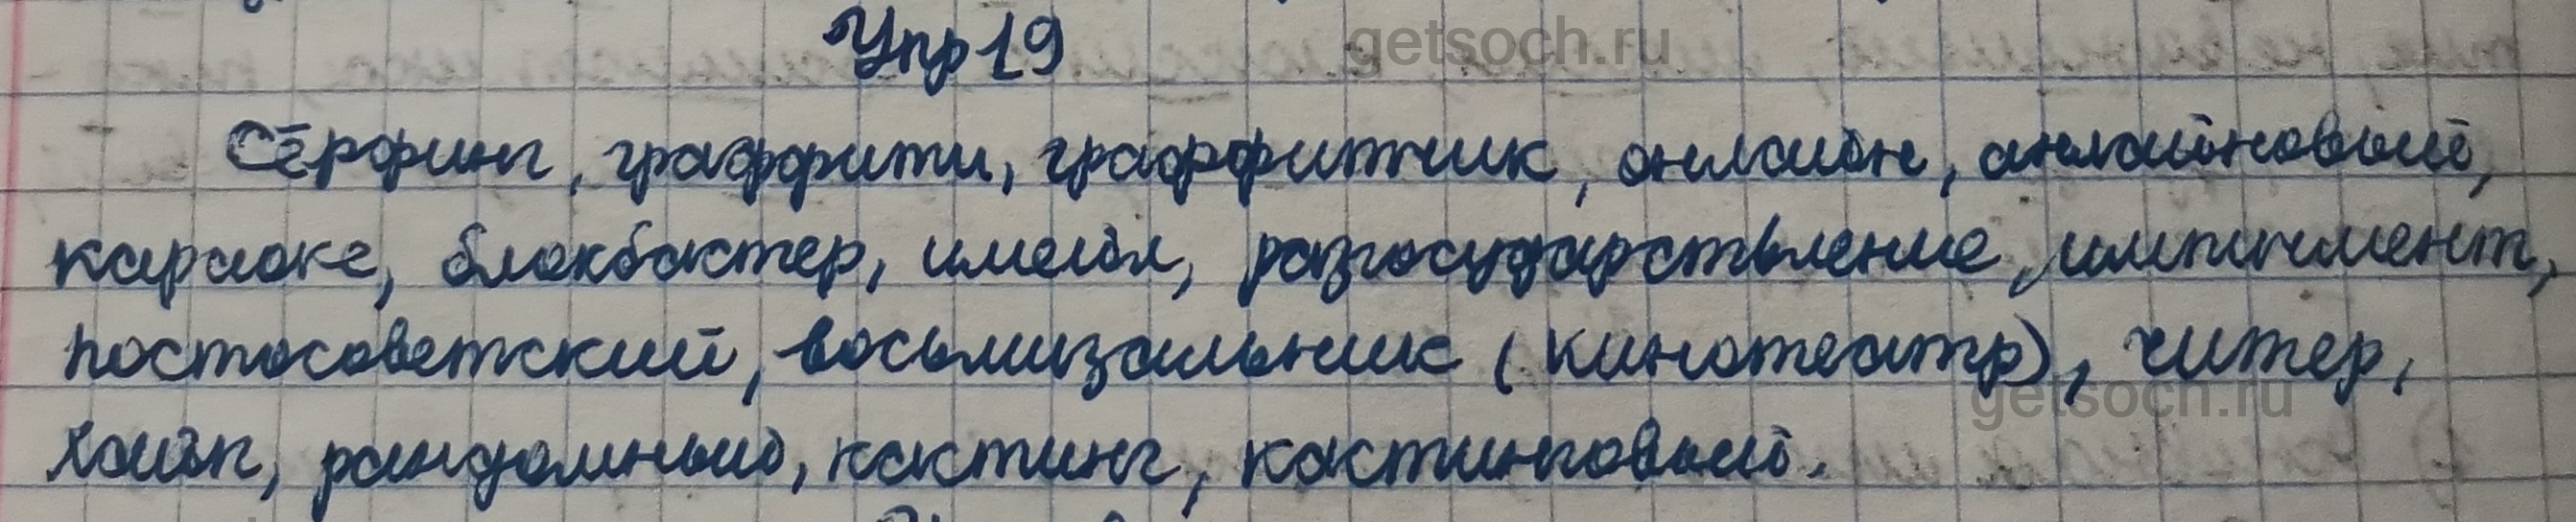 Упр 19
getsoch.ru
Сёрфинг, граффити, граффитчик, онлайн, онлайновый,
караоке, блокбастер, имейл, разгосударствление, импичмент,
постсоветский, восьмизальник (кинотеатр), читер,
getsoch.ru
хайп, рандомный, кастинг, кастинговый.